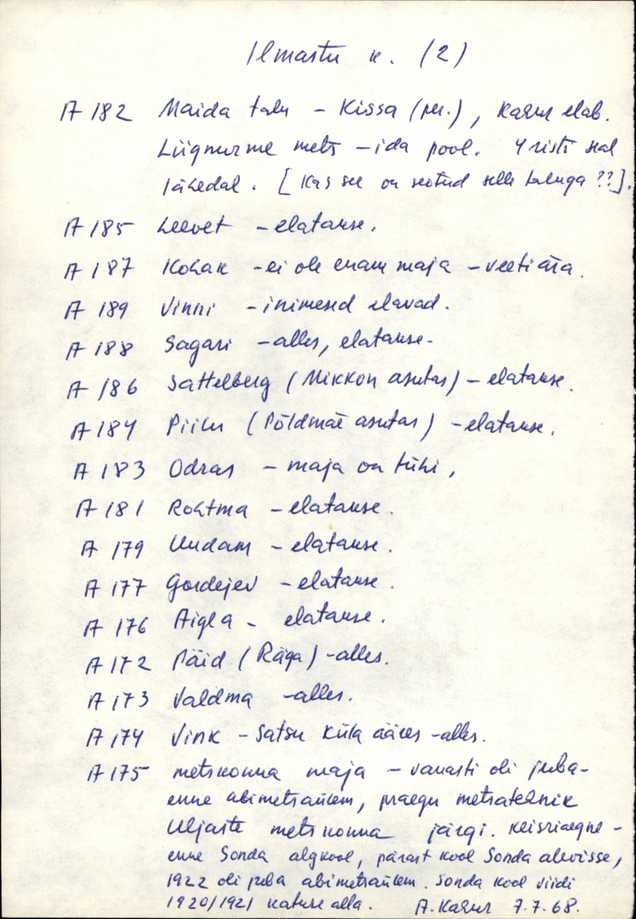 Ilmastu k. (2)
A 182 Maida talu - Kissa (per.), Kaeur elab.
Liignurme mets - ida pool. 4 risti seal
lähedal. [Kas see on seotud selle taluga ??].
A 185 Leevet - elatakse.
A 187 Kohak - ei ole enam maja - veeti ära.
A 189 Vinni - inimesed elavad.
A 188 Sagari - alles, elatakse.
A 186 Sattelberg (Mikkon asutas) - elatakse.
A 184 Piilu (Põldmäe asutas) - elatakse.
A 183 Odras - maja on tühi,
A 181 Rohtma - elatakse.
A 179 Undam - elatakse.
A 177 Gordejev - elatakse.
A 176 Aigla - elatakse.
A 172 Päid (Räga) - alles.
A 173 Valdma - alles.
A 174 Vink - Satsu küla ääres - alles.
A 175 metskonna maja - vanasti oli juba
enne abimetsaülem, praegu metsatehnik
Uljaste metskonna järgi. Keisriaegne -
enne Sonda algkool, pärast kool Sonda alevisse,
1922 oli juba abimetsaülem. Sonda kool viidi
1920/1921 katuse alla. A. Kaeur 7.7.68.